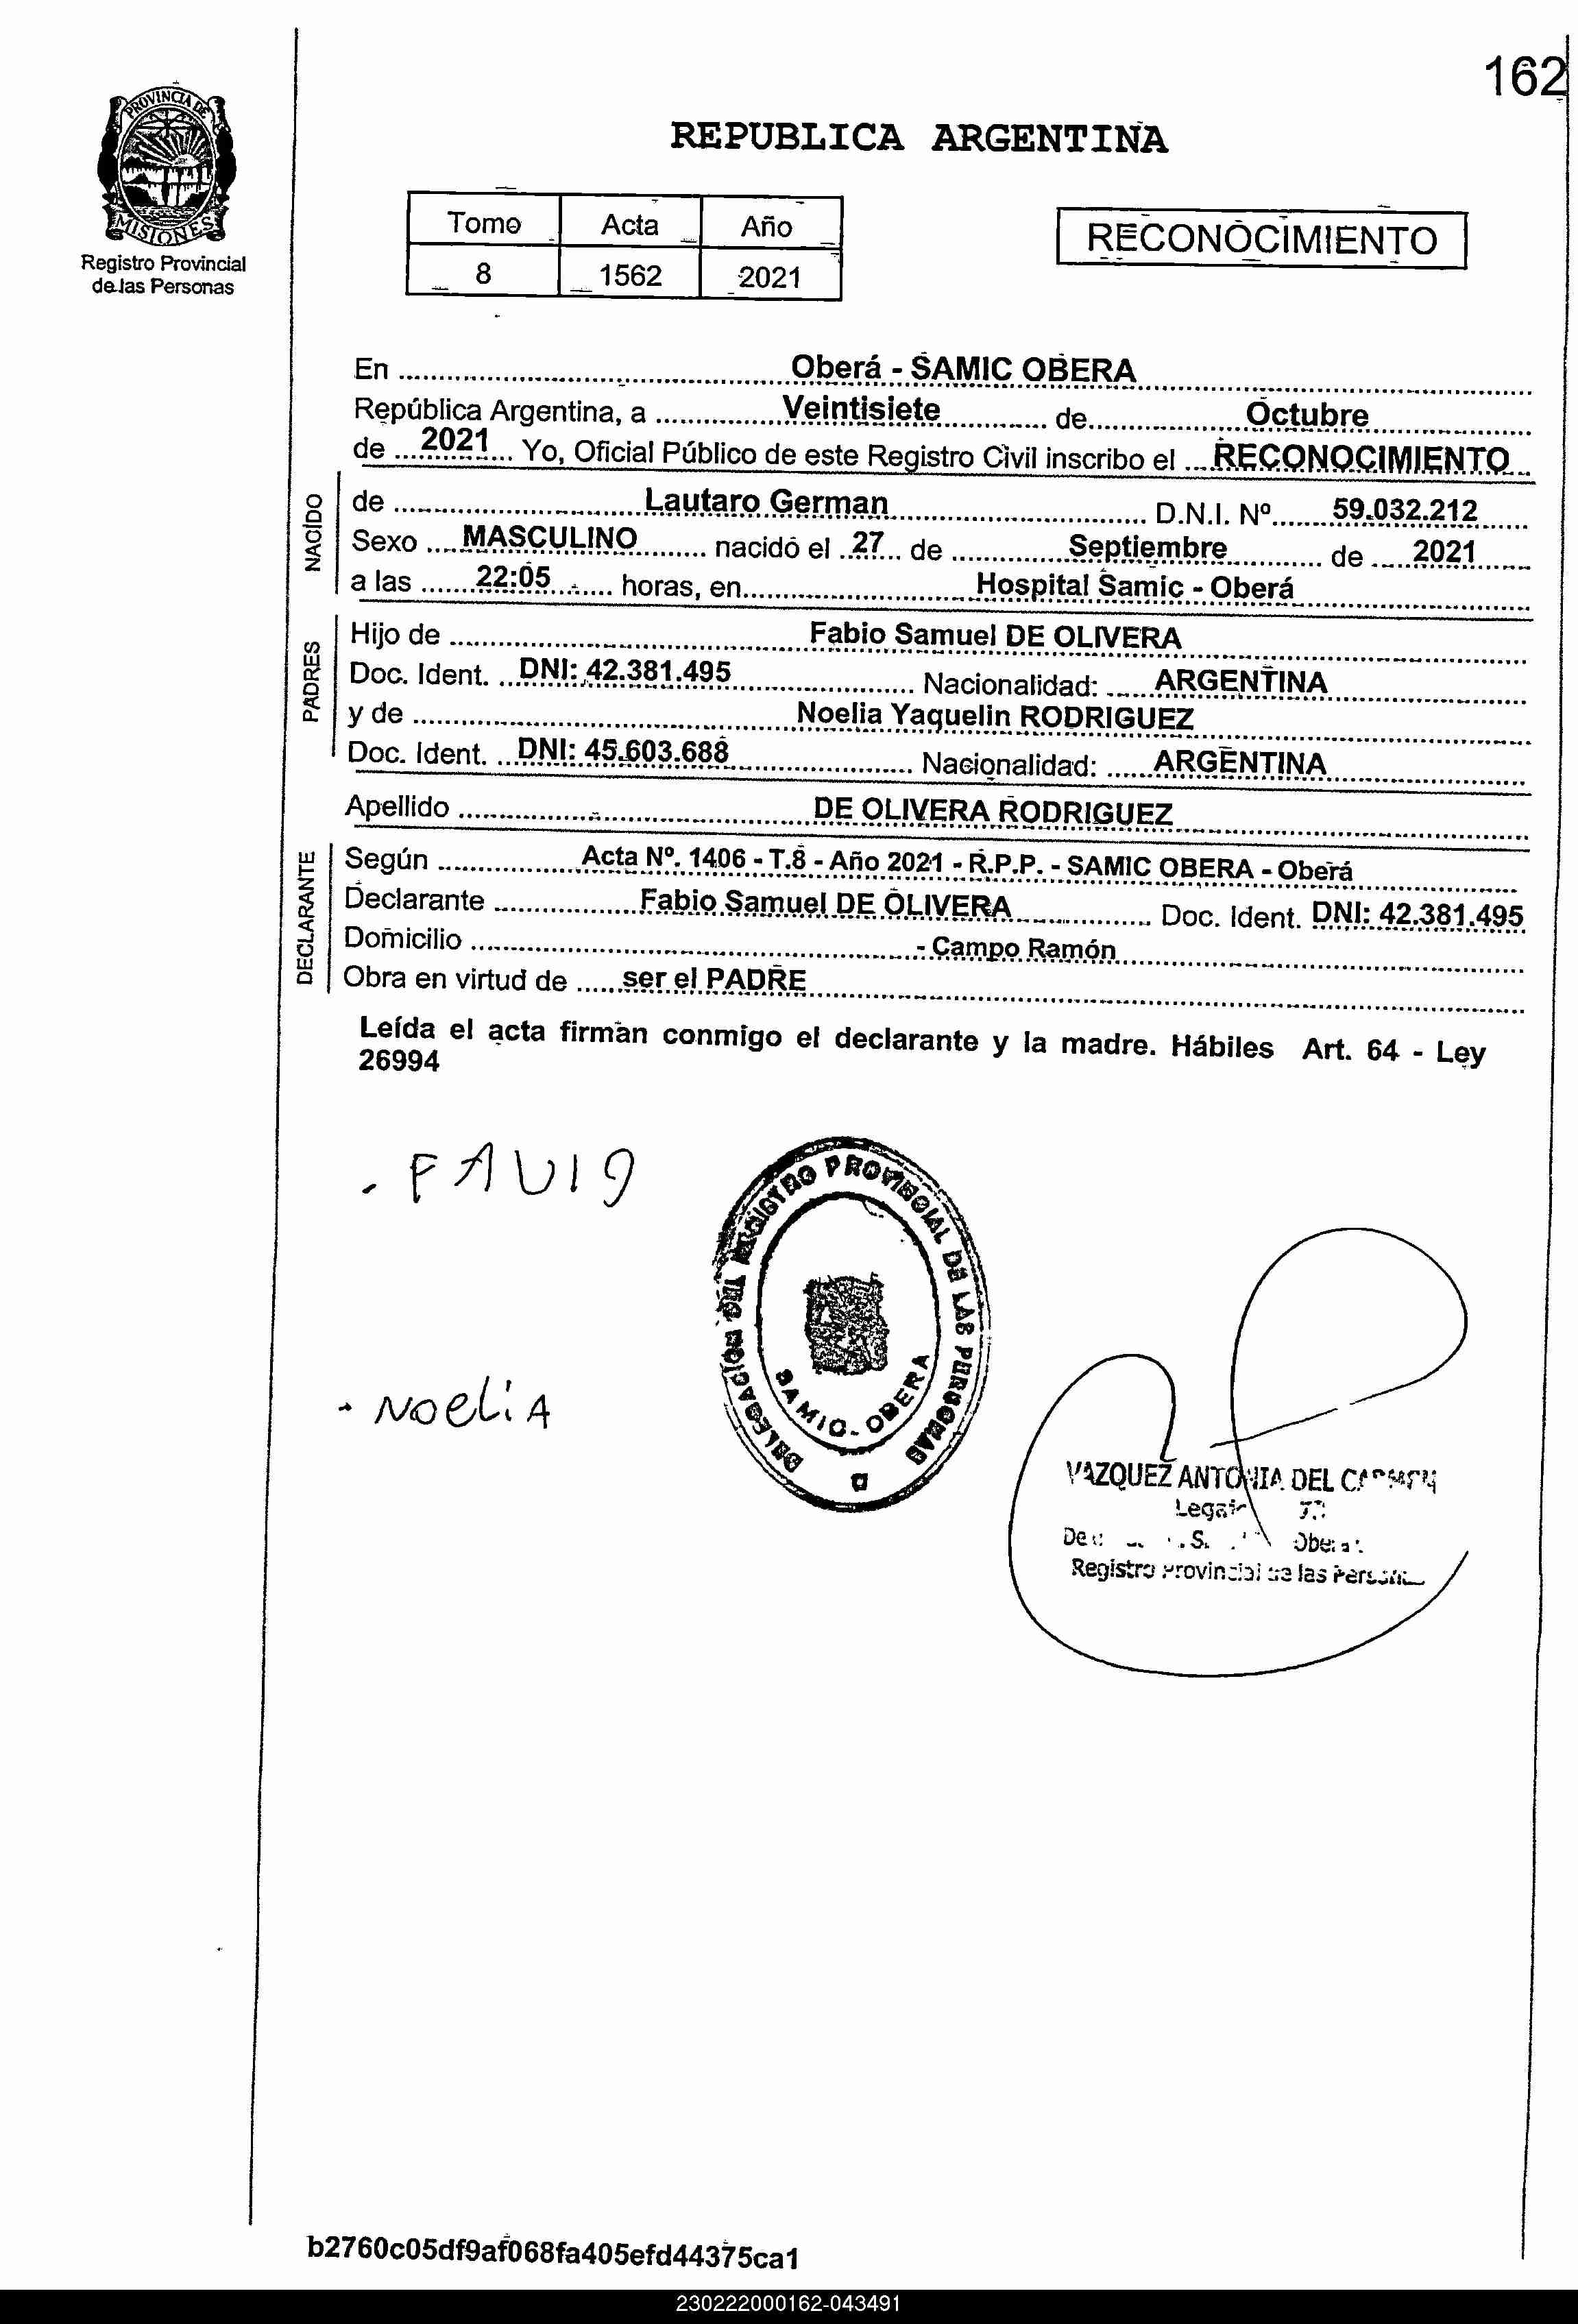 162
PROVINCIA DE
MISIONES
Registro Provincial
de las Personas
REPUBLICA ARGENTINA
Tomo Acta Año
8 1562 2021
RECONOCIMIENTO
En Oberá - SAMIC OBERA
República Argentina, a Veintisiete de Octubre
de 2021 Yo, Oficial Público de este Registro Civil inscribo el RECONOCIMIENTO
NACIDO
de Lautaro German D.N.I. Nº 59.032.212
Sexo MASCULINO nacido el 27 de Septiembre de 2021
a las 22:05 horas, en Hospital Samic - Oberá
PADRES
Hijo de Fabio Samuel DE OLIVERA
Doc. Ident. DNI: 42.381.495 Nacionalidad: ARGENTINA
y de Noelia Yaquelin RODRIGUEZ
Doc. Ident. DNI: 45.603.688 Nacionalidad: ARGENTINA
Apellido DE OLIVERA RODRIGUEZ
DECLARANTE
Según Acta Nº. 1406 - T.8 - Año 2021 - R.P.P. - SAMIC OBERA - Oberá
Declarante Fabio Samuel DE OLIVERA Doc. Ident. DNI: 42.381.495
Domicilio - Campo Ramón
Obra en virtud de ser el PADRE
Leída el acta firman conmigo el declarante y la madre. Hábiles Art. 64 - Ley
26994
DELEGACION DEL REGISTRO PROVINCIAL DE LAS PERSONAS
SAMIC - OBERA
NOeLiA
VAZQUEZ ANTONIA DEL CARMEN
Registro Provincial de las
b2760c05df9af068fa405efd44375ca1
230222000162-043491